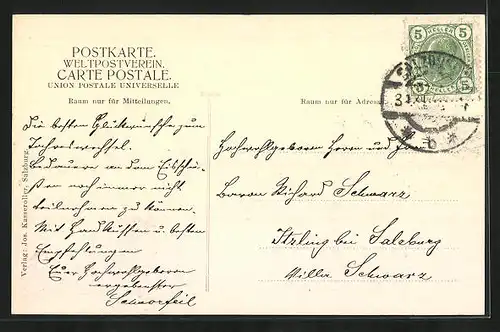 POSTKARTE.
WELTPOSTVEREIN.
CARTE POSTALE.
UNION POSTALE UNIVERSELLE
Raum nur für Mitteilungen.
Die besten Glückwünsche zum
Jahreswechsel.
Bedauere an dem Eisschie-
ßen noch immer nicht
teilnehmen zu können.
Mit Handküssen u. besten
Empfehlungen
Euer Hochwohlgeboren
ergebenster
Verlag: Jos. Kasseroller, Salzburg.
Raum nur für Adresse
Hochwohlgeboren Herrn und
Baron Richard Schwarz
Itzling bei Salzburg
Villa Schwarz
5 HELLER 5
5 5